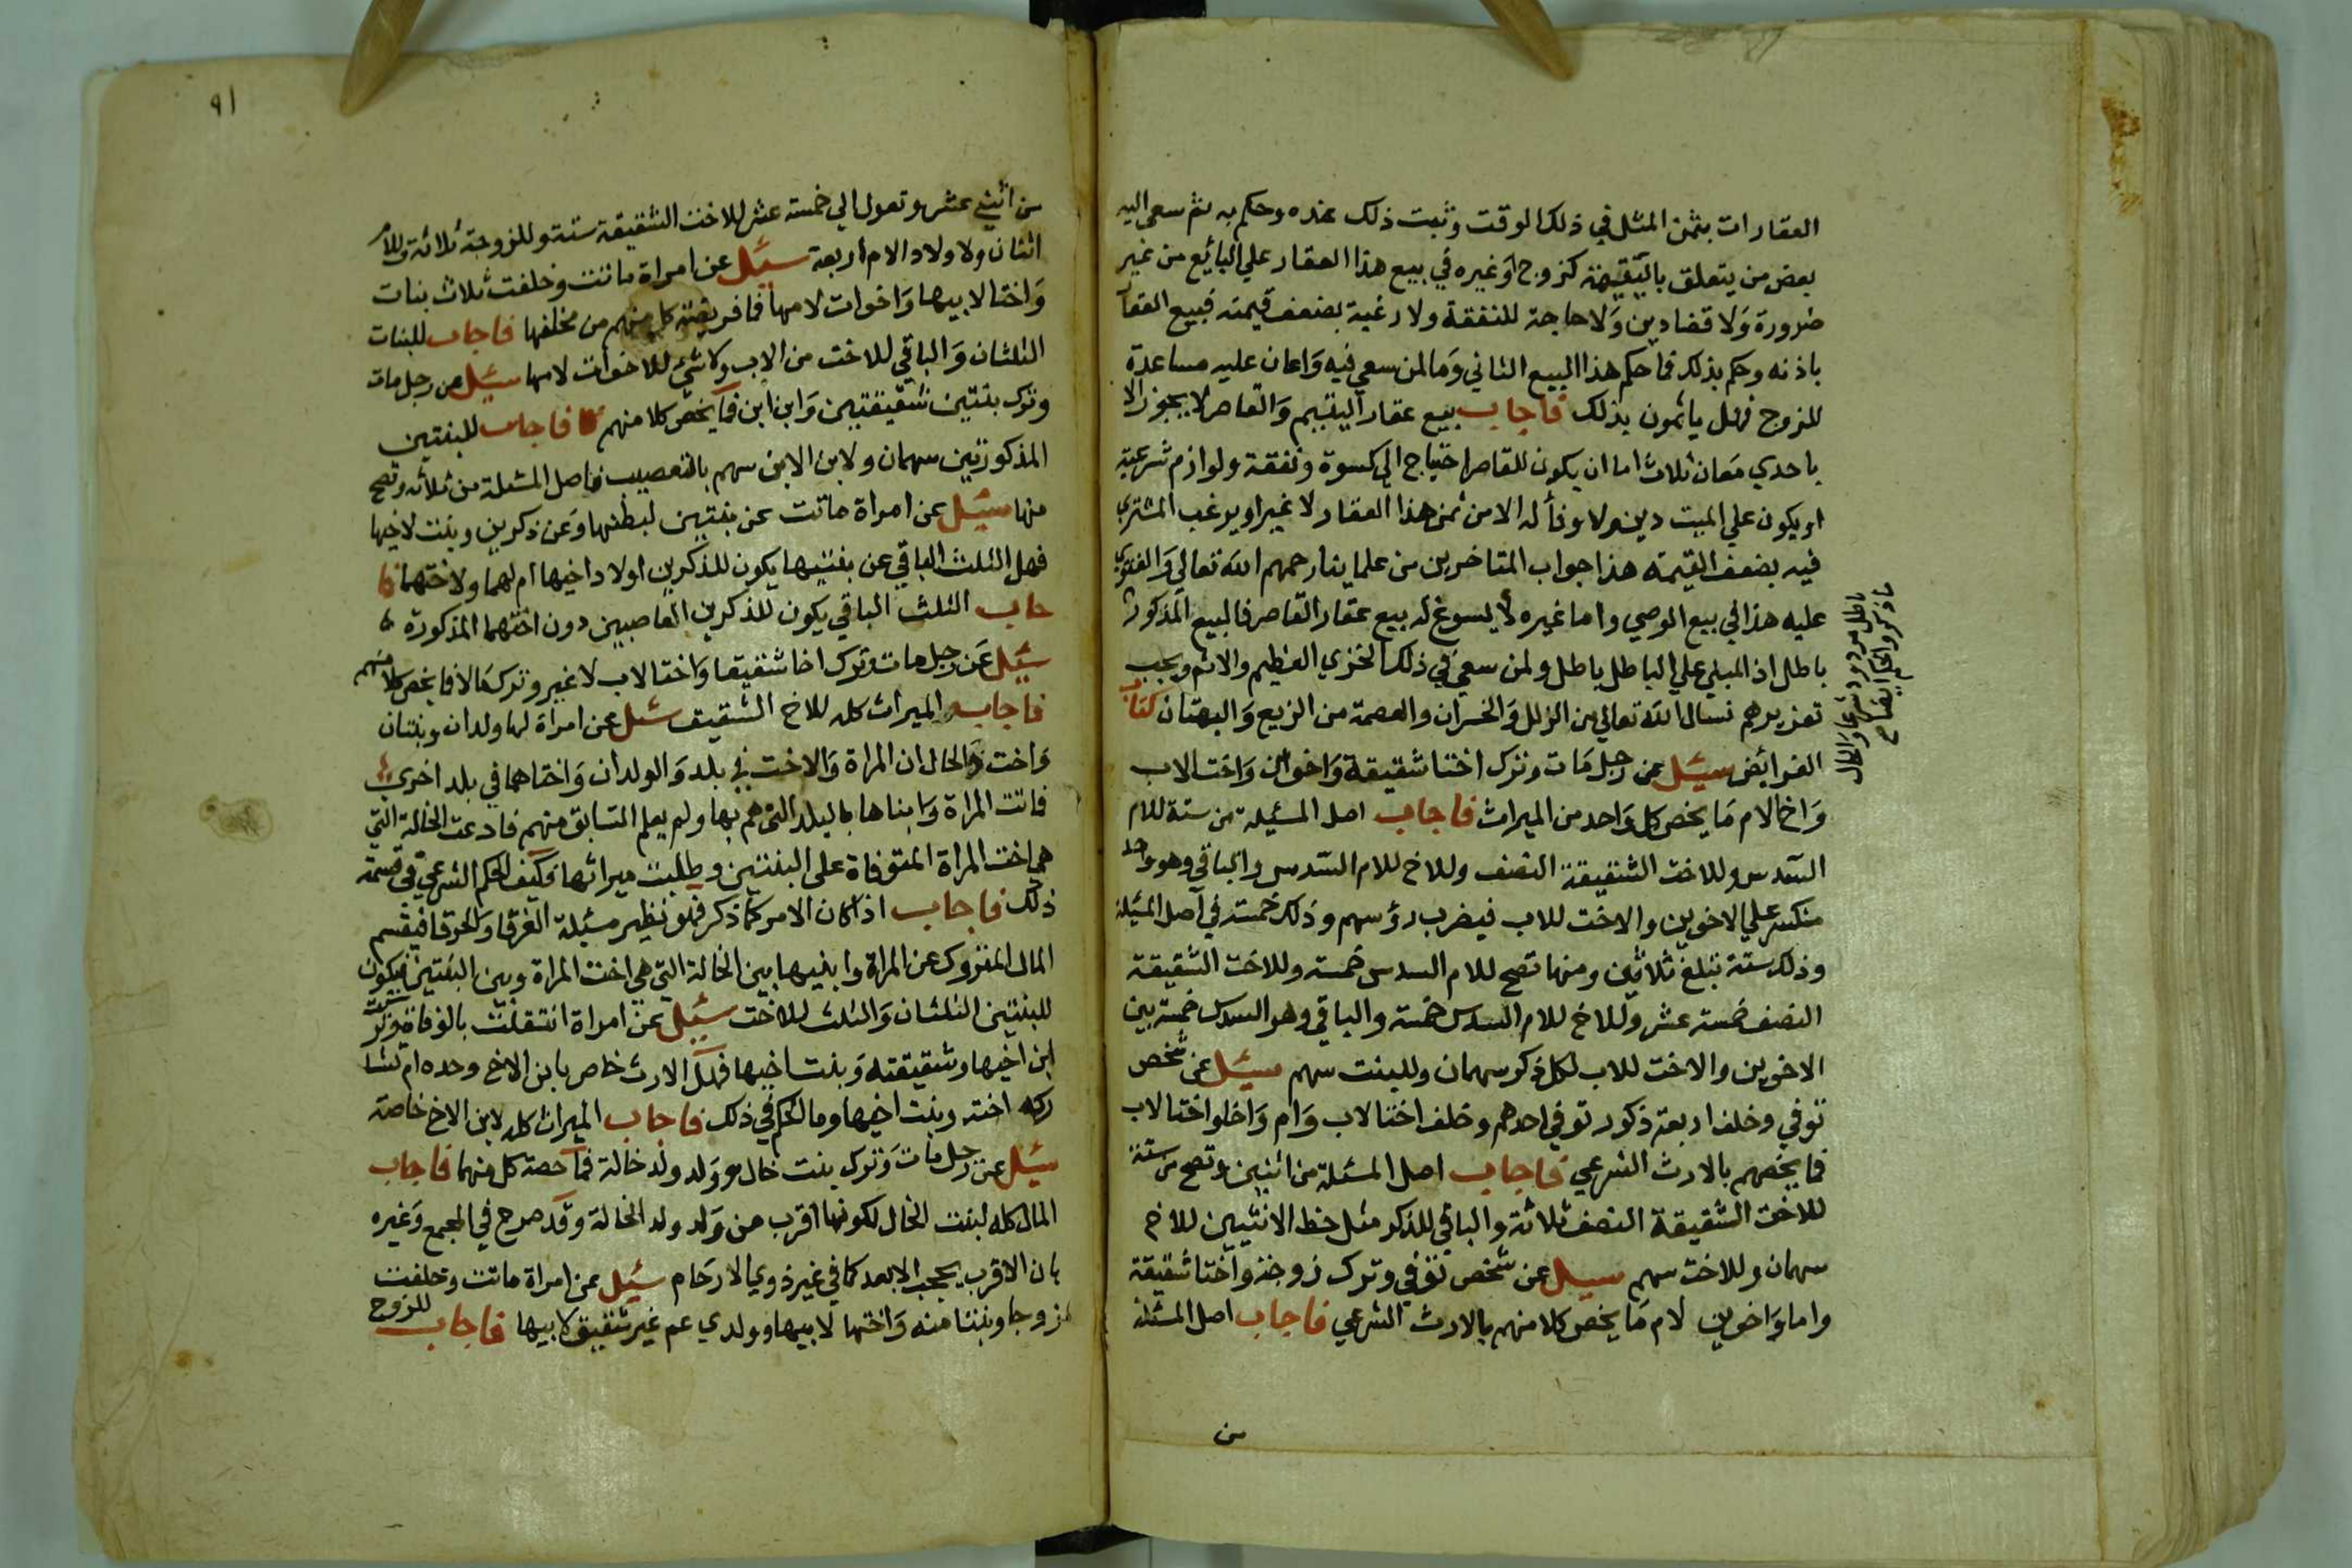 العقارات بثمن المثل في ذلك الوقت وثبت ذلك عنده وحكم به ثم سعى اليه
بعض من يتعلق باليتيمة كزوج اوغيره في بيع هذا العقار علي البائع من غير
ضرورة وَلا قضا دين وَلا حاجة للنفقة ولا رغبة بضعف قيمته فبيع العقار
باذنه وحكم بذلك فما حكم هذا البيع الثاني وَما لمن سعى فيه وَاعان عليه مساعدة
للزوج فهل ياثمون بذلك فاجاب بيع عقار اليتيم وَالقاصر لا يجوز الا
باحدي مَعان ثلاث اما ان يكون للقاصر احتياج الي كسوة ونفقة ولوازم شرعية
او يكون علي الميت دين ولا وفأ له الا من ثمن هذا العقار لا غير او يرغب المشتري
فيه بضعف القيمة هذا جواب المتاخرين من علماينا رحمهم الله تعالي وَالفتوي
عليه هذا في بيع الوصي واما غيره لا يسوغ له بيع عقار القاصر فالبيع المذكور
باطل اذ المبني علي الباطل باطل ولمن سعى في ذلك الخزي العظيم والاثم ويجب
تعزيرهم نسال الله تعالي من الزلل وَالخسران والعصمة من الزيع وَالبهتان كتاب
الفرائض سيئل عن رجل مَات وترك اختا شقيقة وَاخوان وَاخت الاب
وَاخ الام مَا يخص كل وَاحد من الميراث فاجاب اصل المسئيلة من ستة للام
السدس وللاخت الشقيقة النصف وللاخ للام السدس والباقي وهو واحد
منكسر علي الاخوين والاخت للاب فيضرب رؤسهم وذلك خمسة في اصل المسئيلة
وذلك ستة تبلغ ثلاثين ومنها تصح للام السدس خمسة وللاخت الشقيقة
النصف خمسة عشر وللاخ للام السدس خمسة والباقي وهو السدس خمسة بين
الاخوين والاخت للاب لكل ذكر سهمان وللبنت سهم سيئل عن شخص
توفي وخلف اربعة ذكور توفي احدهم وخلف اختا لاب وَام وَاخا واختا لاب
فما يخصهم بالارث الشرعي فاجاب اصل المسئلة من اثنين وتصح من ستة
للاخت الشقيقة النصف ثلاثة والباقي للذكر مثل حظ الانثيين للاخ
سهمان وللاخت سهم سيل عن شخص توفي وترك زوجة واختا شقيقة
واما وَاخوين لام مَا يخص كلا منهم بالارث الشرعي فاجاب اصل المسئلة
من
٩١
من اثني عشر وتعول الي خمسة عشر للاخت الشقيقة ستة وللزوجة ثلاثة وللام
اثنان ولاولاد الام اربعة سيئل عن امراة ماتت وخلفت ثلاث بنات
وَاختا لابيها وَاخوات لامها فما فريضة كل منهم من مخلفها فاجاب للبنات
الثلثان وَالباقي للاخت من الاب ولا شئ للاخوات لامها سيئل عن رجل مات
وترك بنتين شقيقتين وَابن ابن فما يخص كلا منهم فاجاب للبنتين
المذكورتين سهمان ولابن الابن سهم بالتعصيب فاصل المسئلة من ثلاثه وتصح
منها سيئل عن امراة ماتت عن بنتين لبطنها وَعن ذكرين وبنت لاخيها
فهل الثلث الباقي عن بنتيها يكون للذكرين اولاد اخيها ام لهما ولاختهما فا
جاب الثلث الباقي يكون للذكرين العاصبين دون اختهما المذكورة
سيئل عَن رجل مات وترك اخا شقيقا وَاختا لاب لا غير وترك مَالا فما يخص كلا منهم
فاجاب الميراث كله للاخ الشقيق سئل عن امراة لها ولدان وبنتان
وَاخت وَالحال ان المراة وَالاخت في بلد وَالولدان وَاختاهما في بلد اخري
فماتت المراة وَابناها بالبلد التي هم بها ولم يعلم السابق منهم فادعت الخالة التي
هي اخت المراة المتوفاة على البنتين وطلبت ميراثها فكيف الحكم الشرعي في قسمة
ذلك فاجاب اذا كان الامر كما ذكر فهو نظير مسئيلة الغرقا وَالحرقا فيقسم
المال المتروك عن المراة وابنيها بين الخالة التي هي اخت المراة وبين البنتين فيكون
للبنتين الثلثان وَالثلث للاخت سيئل عن امراة انتقلت بالوفاة وتركت
ابن اخيها وشقيقته وَبنت اخيها فهل الارث خاص بابن الاخ وحده ام تشا
ركه اخته وبنت اخيها وما الحكم في ذلك فاجاب الميراث كله لابن الاخ خاصة
سيئل عن رجل مات وَترك بنت خال وَولد ولد خالة فما حصة كل منهما فاجاب
المال كله لبنت الخال لكونها اقرب من وَلد ولد الخالة وقد صرح في المجمع وَغيره
بان الاقرب يحجب الابعد كما في غير ذوي الارحَام سئيل عن امراة ماتت وخلفت
زوجا وبنتا منه وَاختها لابيها وولدي عم غير شقيق لابيها فاجاب للزوج